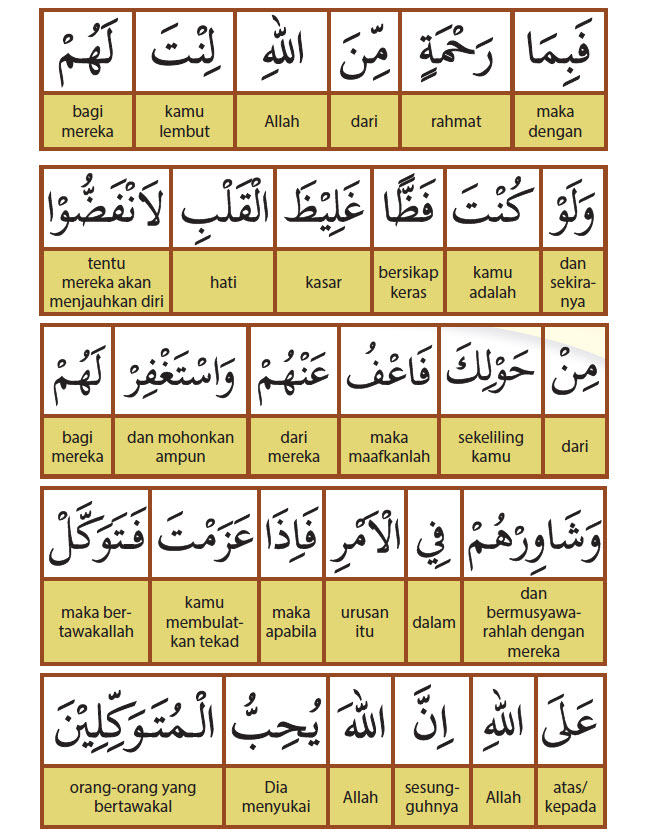 فَبِمَا رَحْمَةٍ مِّنَ اللّٰهِ لِنْتَ لَهُمْ
maka
dengan
rahmat
dari
Allah
kamu
lembut
bagi
mereka
وَلَوْ كُنْتَ فَظًّا غَلِيْظَ الْقَلْبِ لَانْفَضُّوْا
dan
sekira-
nya
kamu
adalah
bersikap
keras
kasar
hati
tentu
mereka akan
menjauhkan diri
مِنْ حَوْلِكَ فَاعْفُ عَنْهُمْ وَاسْتَغْفِرْ لَهُمْ
dari
sekeliling
kamu
maka
maafkanlah
dari
mereka
dan mohonkan
ampun
bagi
mereka
وَشَاوِرْهُمْ فِي الْاَمْرِ فَاِذَا عَزَمْتَ فَتَوَكَّلْ
dan
bermusyawa-
rahlah dengan
mereka
dalam
urusan
itu
maka
apabila
kamu
membulat-
kan tekad
maka ber-
tawakallah
عَلَى اللّٰهِ اِنَّ اللّٰهَ يُحِبُّ الْمُتَوَكِّلِيْنَ
atas/
kepada
Allah
sesung-
guhnya
Allah
Dia
menyukai
orang-orang yang
bertawakal